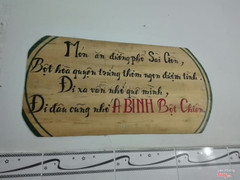 Món ăn đường phố Sài Gòn,
Bột hòa quyện trứng thơm ngon đượm tình.
Đi xa vẫn nhớ quê mình,
Đi đâu cũng nhớ A BÌNH Bột Chiên.